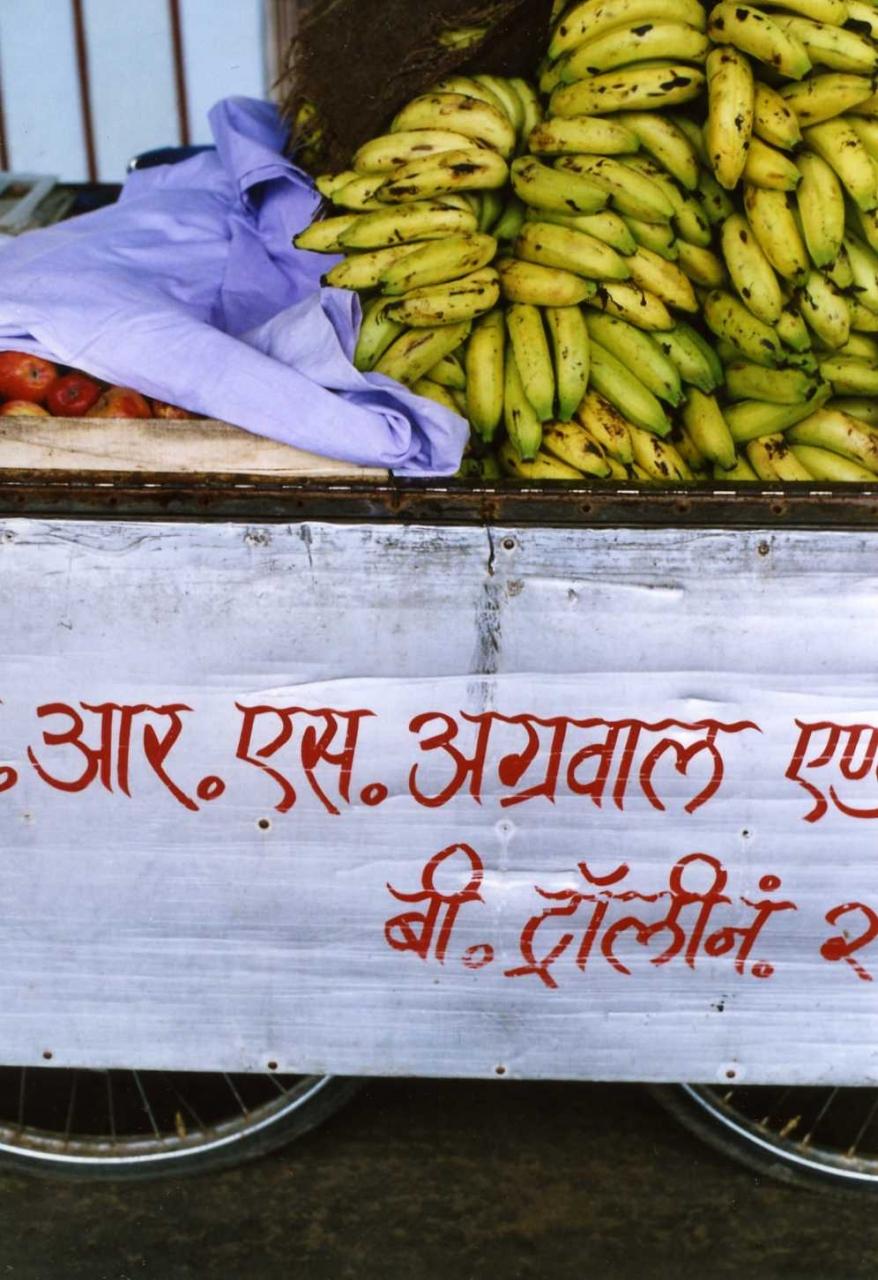 आर. एस. अग्रवाल
बी. ट्रॉली नं. २